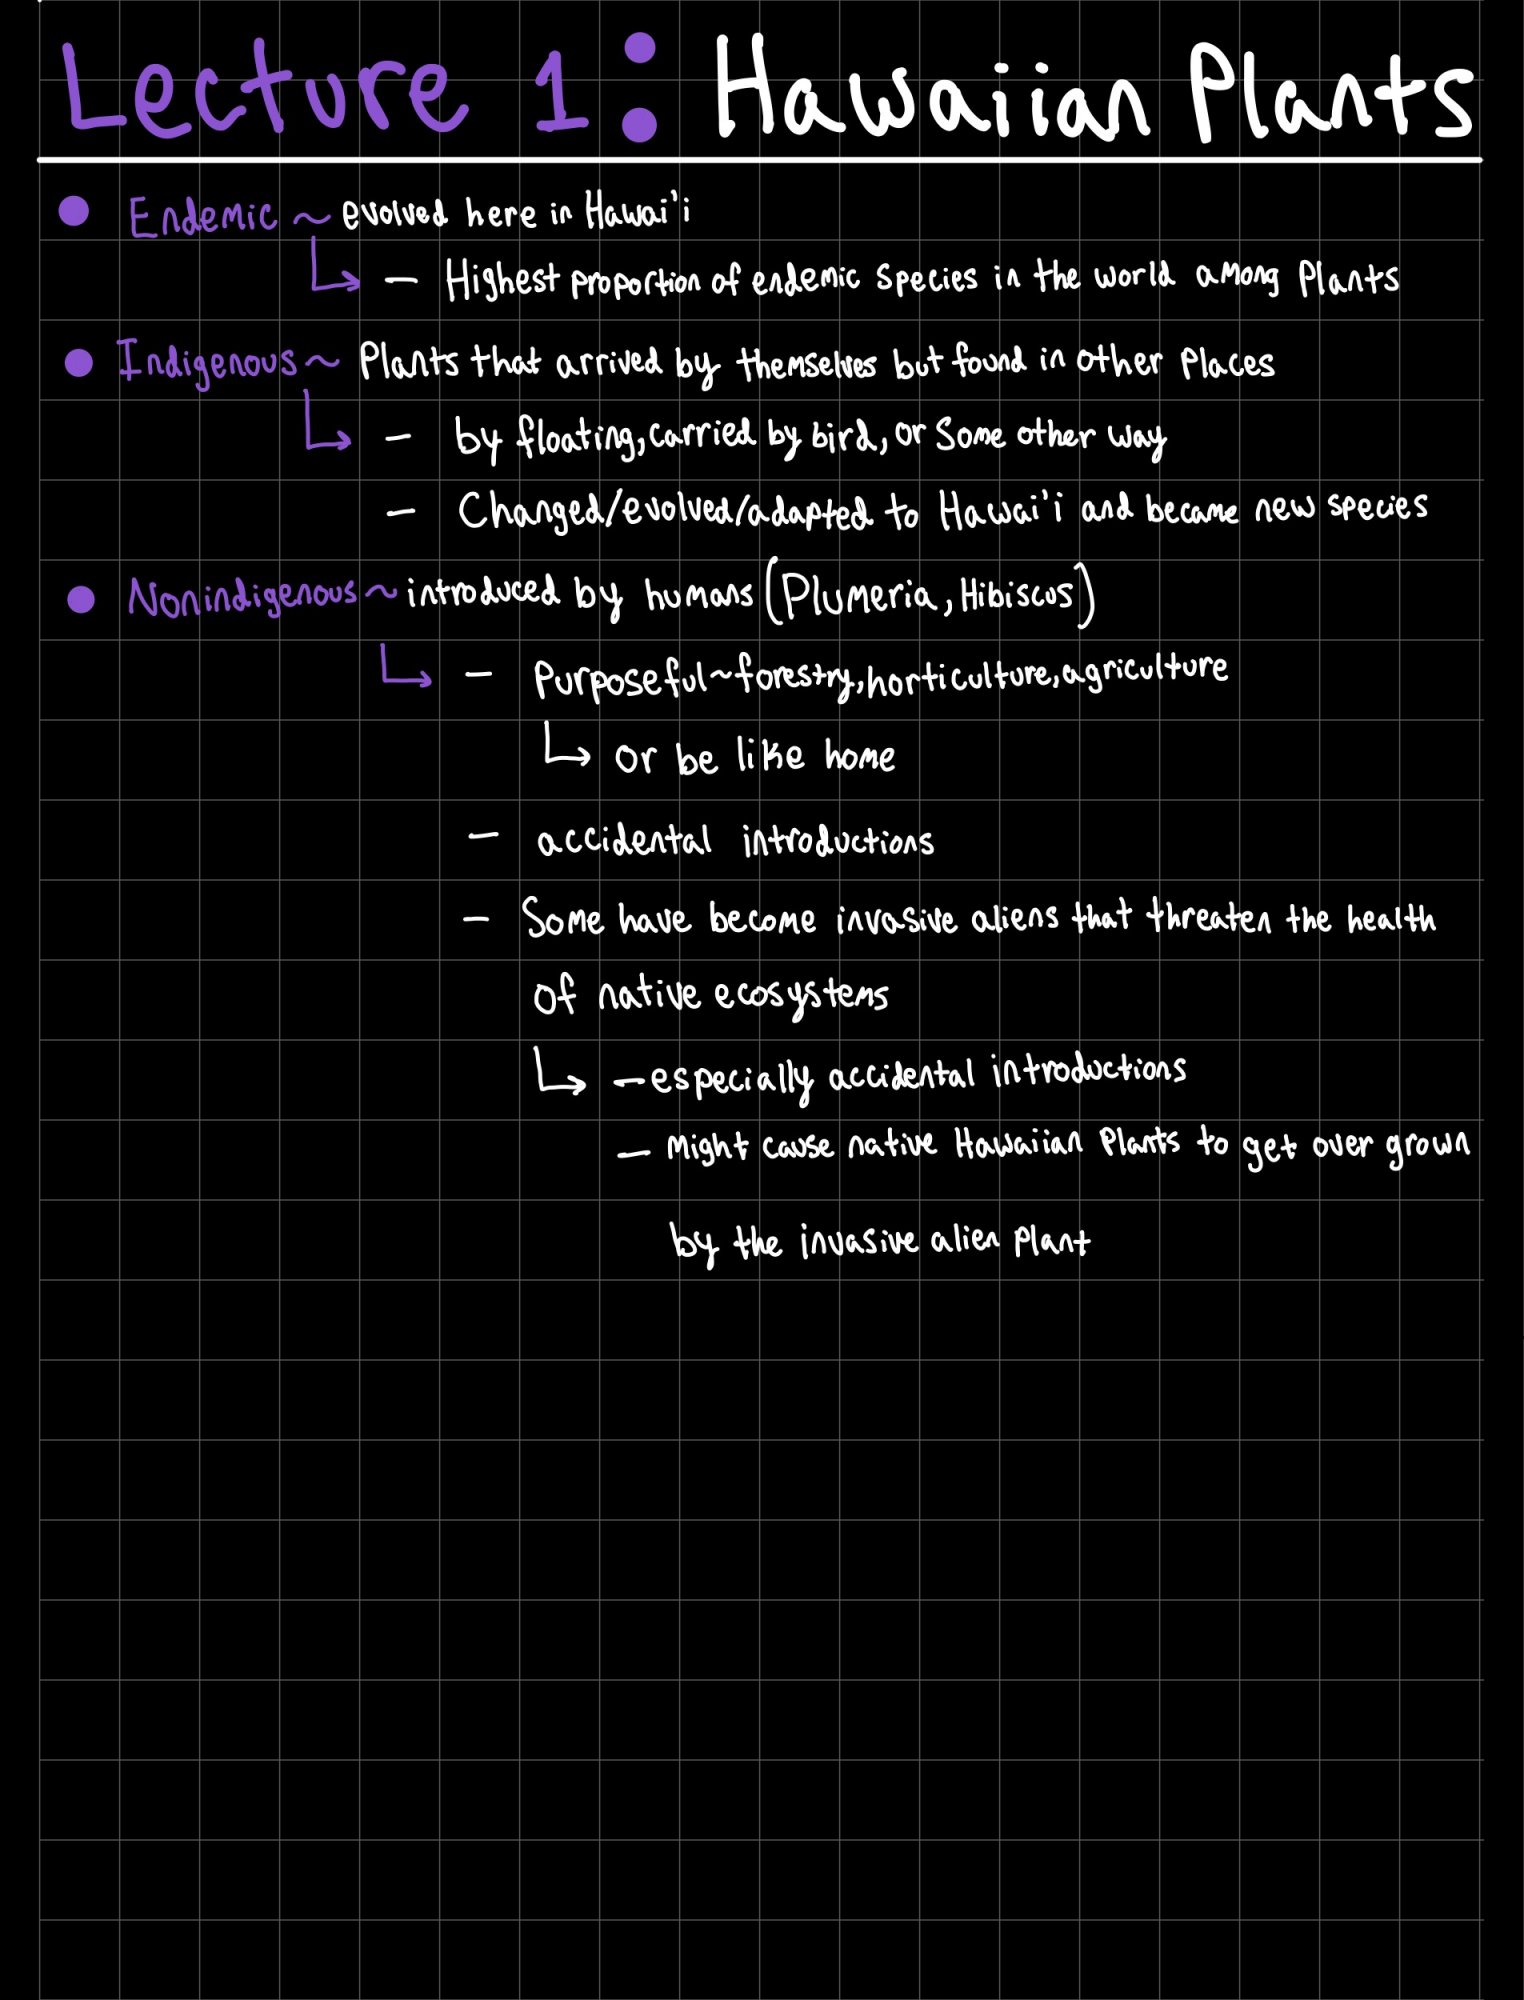 Lecture 1: Hawaiian Plants
• Endemic ~ evolved here in Hawai'i
↳ - Highest proportion of endemic species in the world among Plants
• Indigenous ~ Plants that arrived by themselves but found in other Places
↳ - by floating, carried by bird, or some other way
- Changed/evolved/adapted to Hawai'i and became new species
• Nonindigenous ~ introduced by humans (Plumeria, Hibiscus)
↳ - Purposeful ~ forestry, horticulture, agriculture
↳ or be like home
- accidental introductions
- Some have become invasive aliens that threaten the health
of native ecosystems
↳ - especially accidental introductions
- Might cause native Hawaiian Plants to get over grown
by the invasive alien Plant